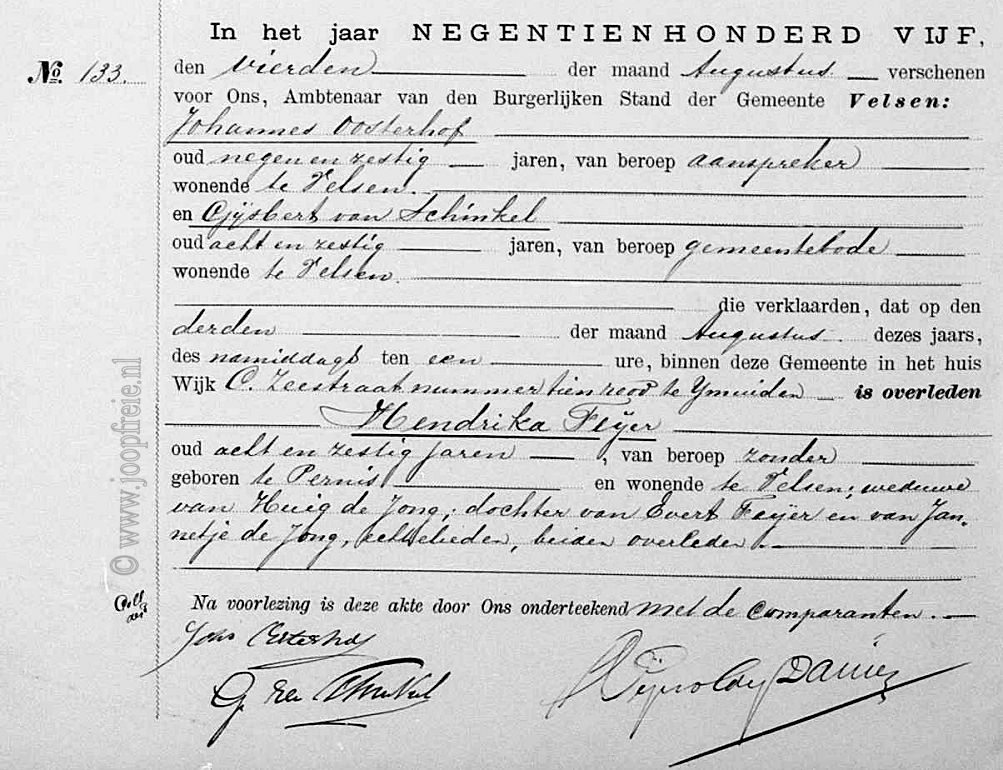 In het jaar NEGENTIENHONDERD VIJF,
No 133.
den vierden der maand Augustus verschenen
voor Ons, Ambtenaar van den Burgerlijken Stand der Gemeente Velsen:
Johannes Oosterhof
oud negen en zestig jaren, van beroep aanspreker
wonende te Velsen.
en Gijsbert van Schinkel
oud acht en zestig jaren, van beroep gemeentebode
wonende te Velsen.
die verklaarden, dat op den
derden der maand Augustus. dezes jaars,
des namiddags ten een ure, binnen deze Gemeente in het huis
Wijk C. Zeestraat nummer tien rood te Ymuiden is overleden
Hendrika Feijer
oud acht en zestig jaren, van beroep zonder
geboren te Pernis en wonende te Velsen; weduwe
van Huig de Jong; dochter van Evert Feijer en van Jan-
netje de Jong, echtelieden, beiden overleden.
Na voorlezing is deze akte door Ons onderteekend met de comparanten.
Joh Oosterhof
G. van Schinkel
© www.joopfreie.nl